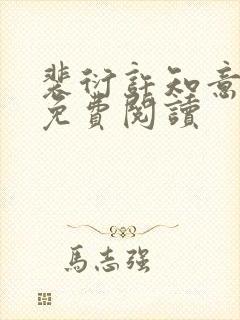 裴衍許知意
免費閱讀
馬志強